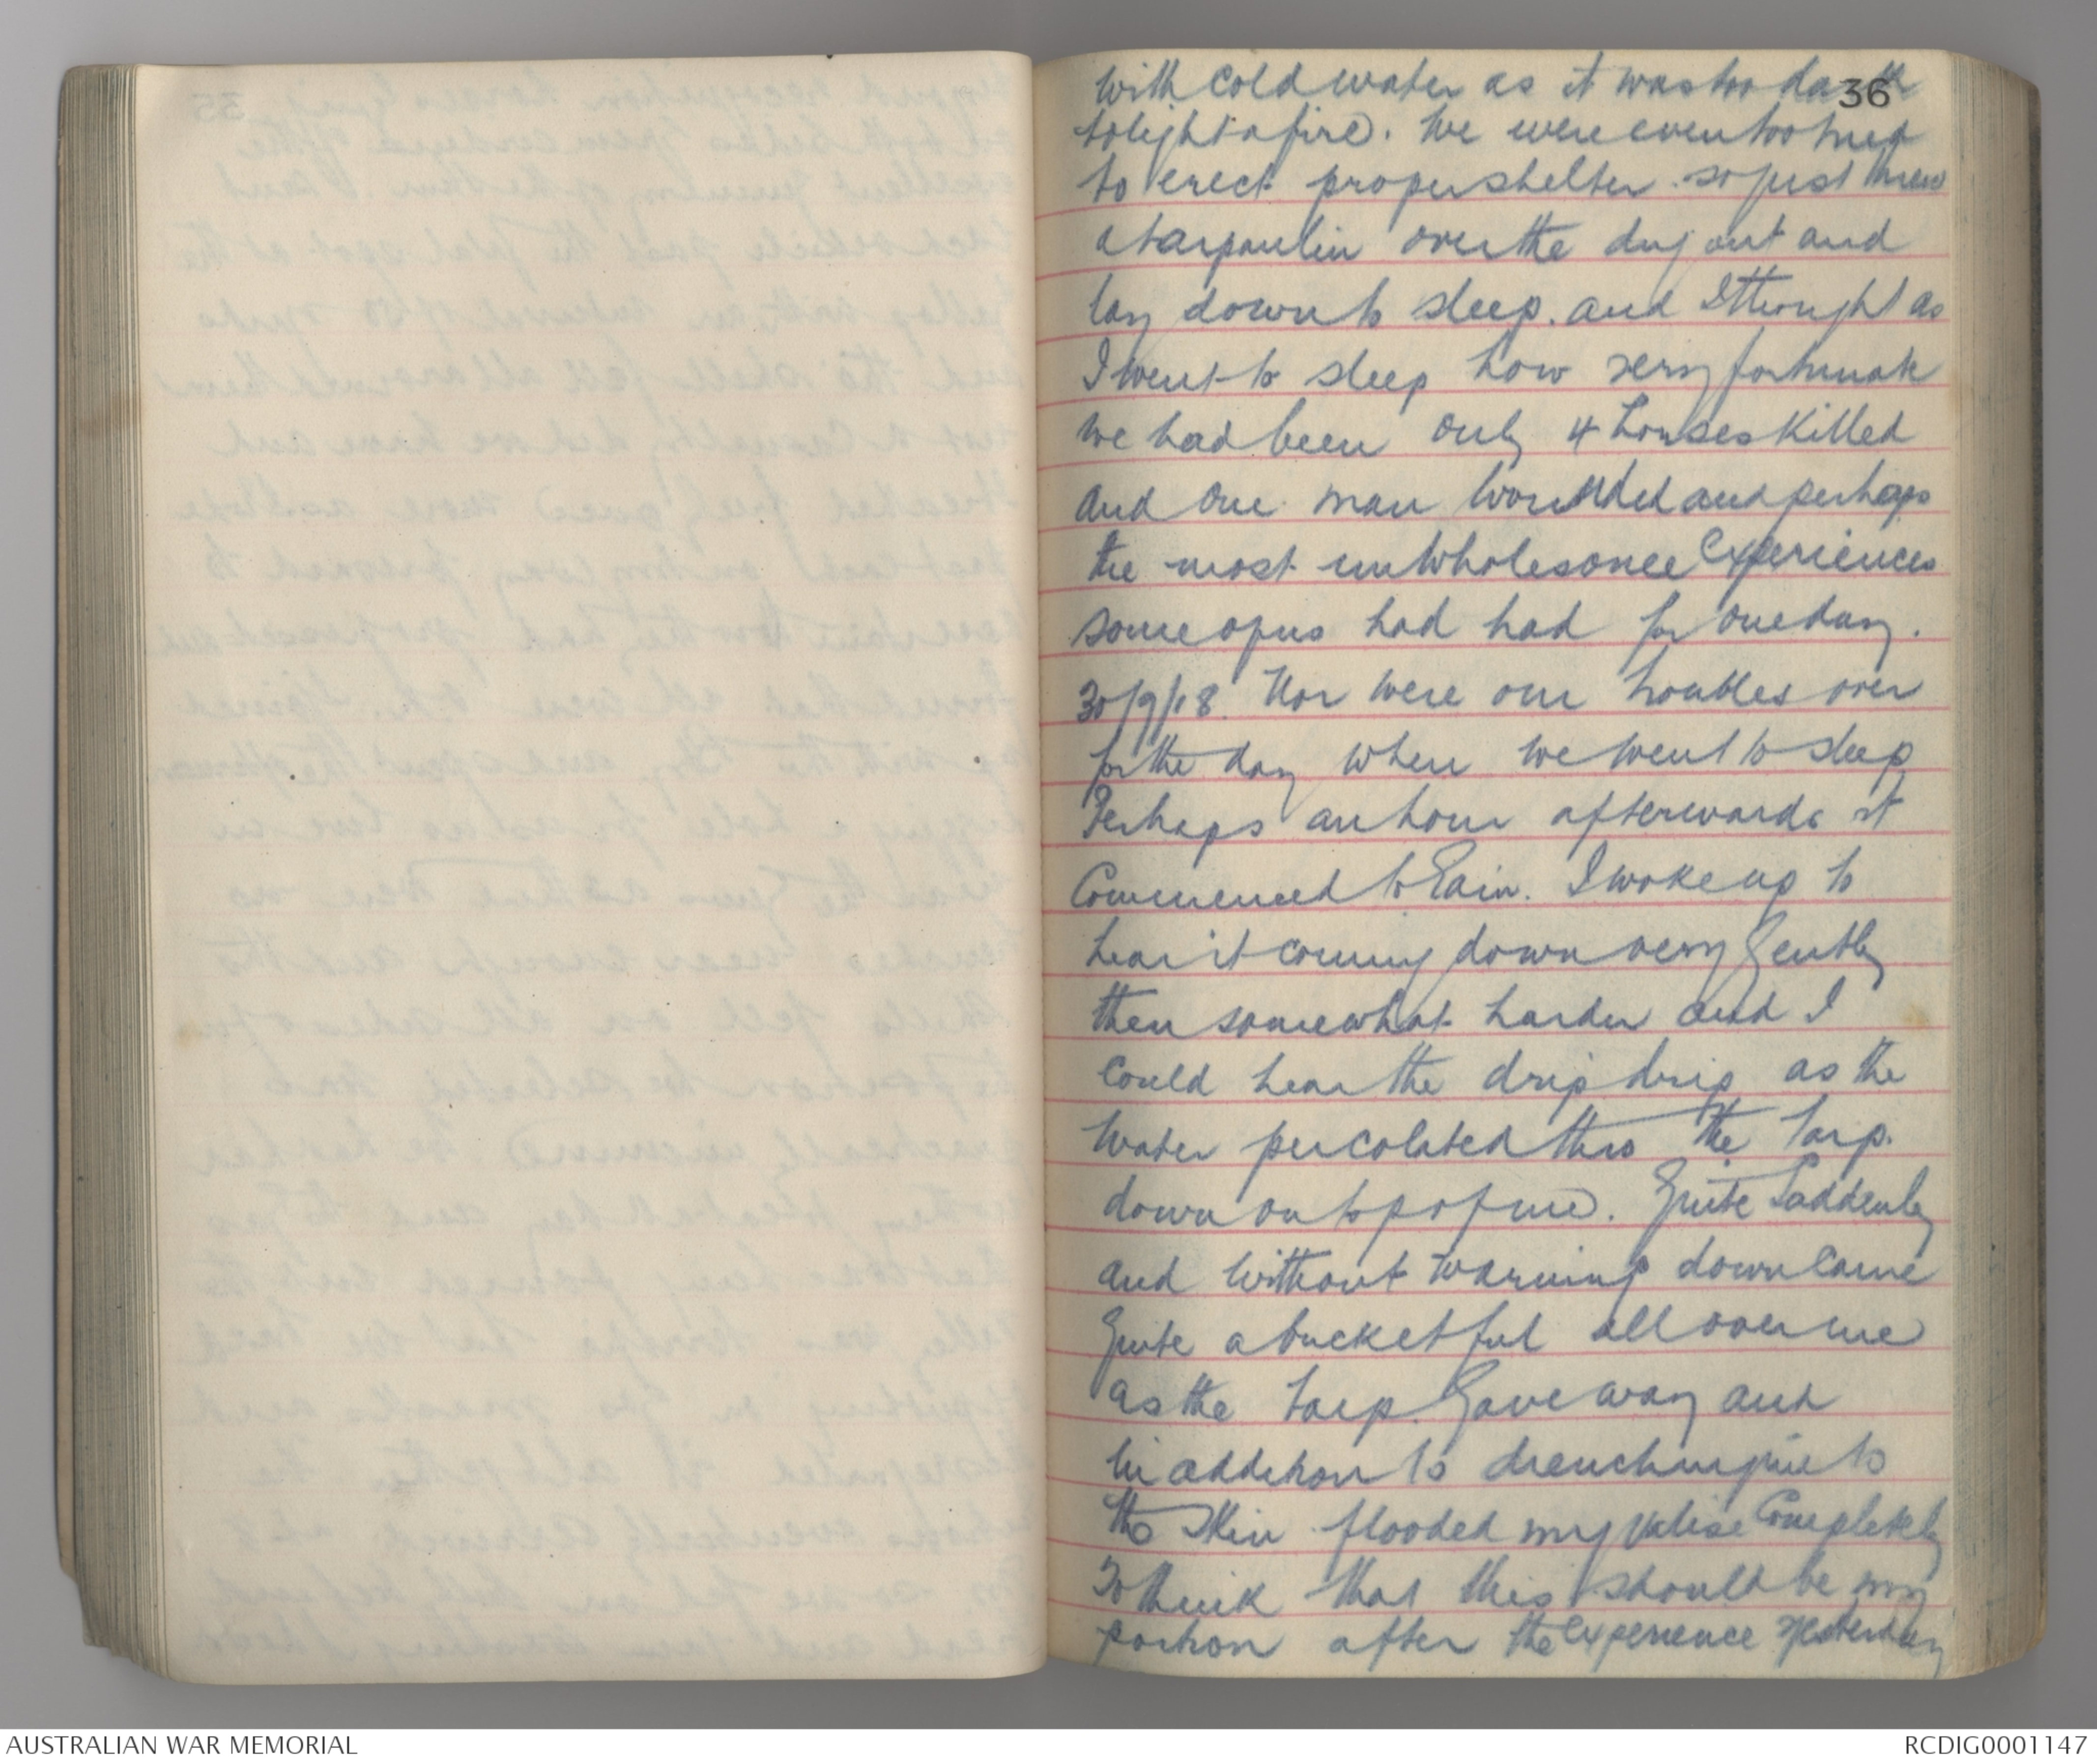 36
with cold water as it was too dark
to light a fire. We were even too tired
to erect proper shelter. so just threw
a tarpaulin over the dug out and
lay down to sleep. and I thought as
I went to sleep how very fortunate
we had been only 4 horses killed
and one man wounded and perhaps
the most unwholesome experiences
some of us had had for one day.
30/9/18. Nor were our troubles over
for the day when we went to sleep
Perhaps an hour afterwards it
Commenced to Rain. I woke up to
hear it coming down very Gently
then somewhat harder and I
could hear the drip drip as the
water percolated thro the tarp.
down on top of me. Quite Suddenly
and without warning down came
Quite a bucketful all over me
as the tarp. Gave way and
in addition to drenching me to
the skin flooded my valise Completely
To think that this should be my
portion after the experience yesterday
AUSTRALIAN WAR MEMORIAL
RCDIG0001147